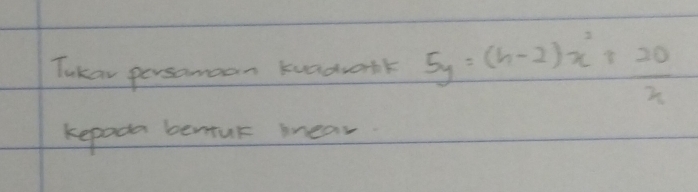 Tukar persamaan kuadratik 5y = (h-2)x² + 20/x
kepada bentuk linear.